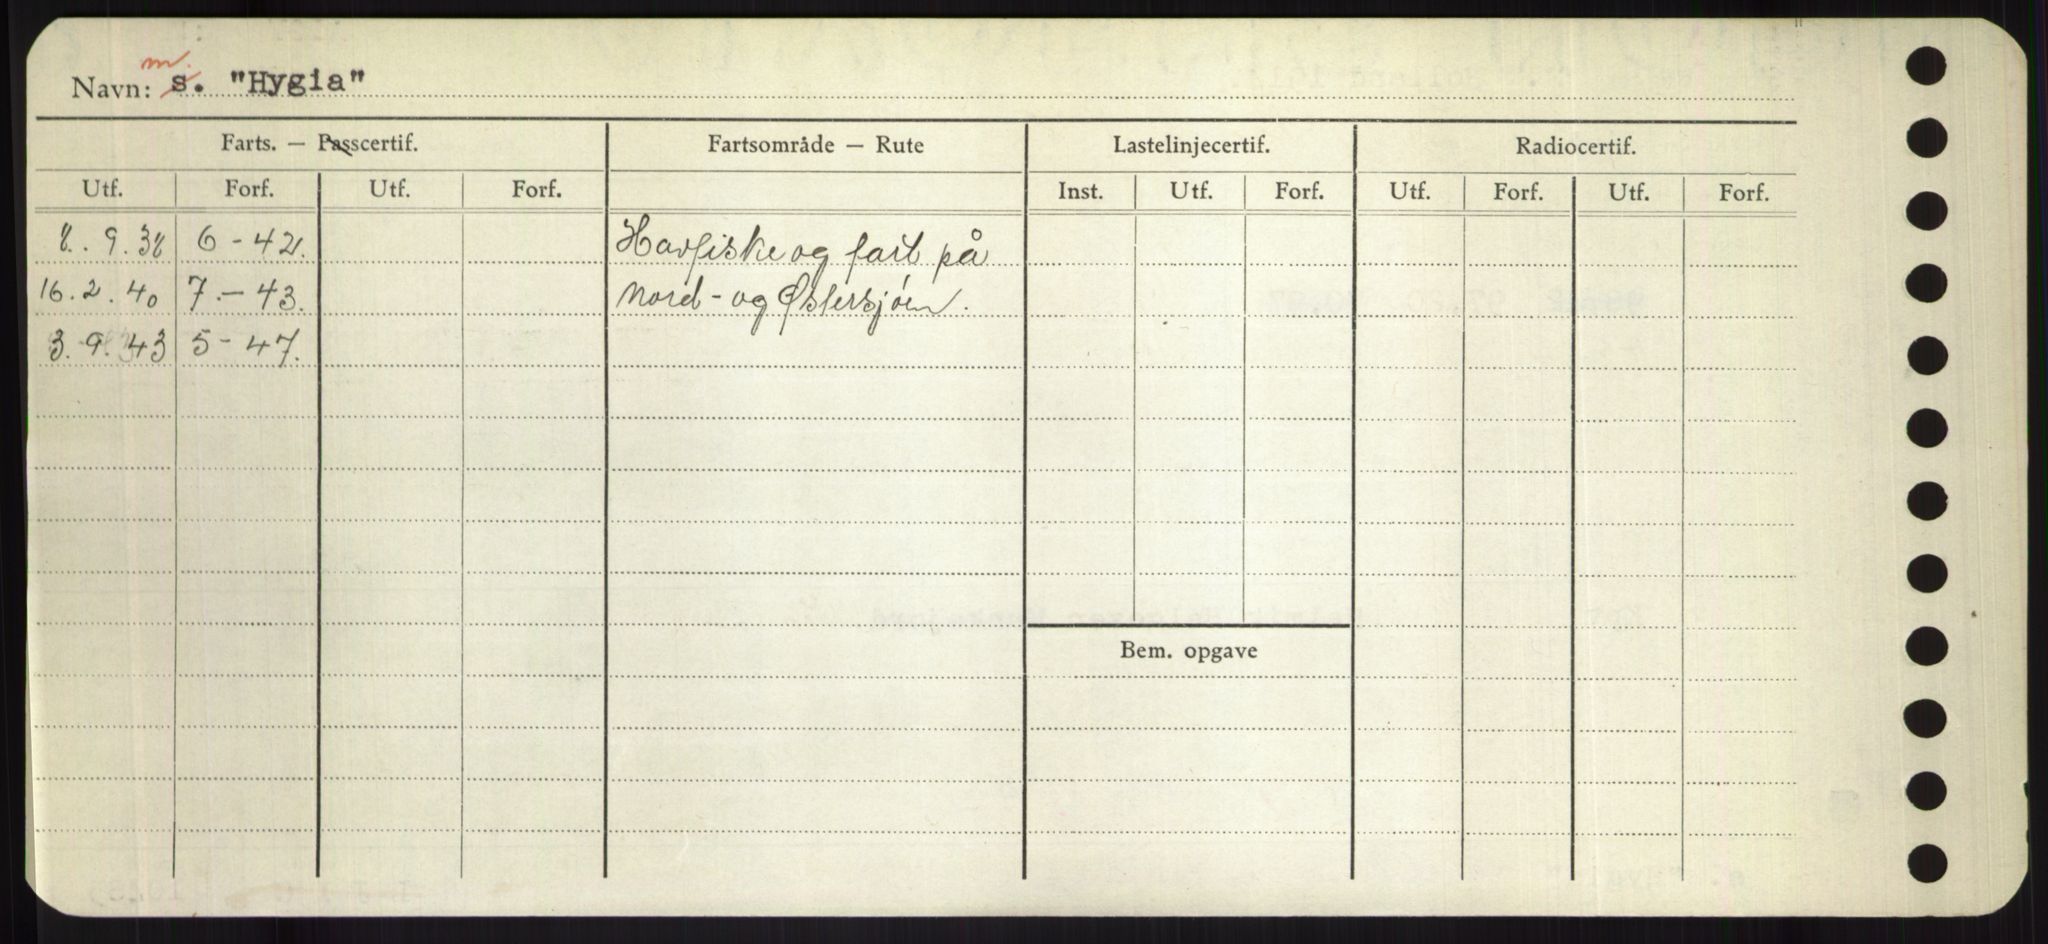 m.
Navn: s. "Hygia"
Farts. — Passcertif. Fartsområde — Rute Lastelinjecertif. Radiocertif.
Utf. Forf. Utf. Forf. Inst. Utf. Forf. Utf. Forf. Utf. Forf.
8. 9. 38 6 - 42. Havfiske og fart på
16. 2. 40 7. - 43. Nord- og Østersjøen.
3. 9. 43 5 - 47.
Bem. opgave